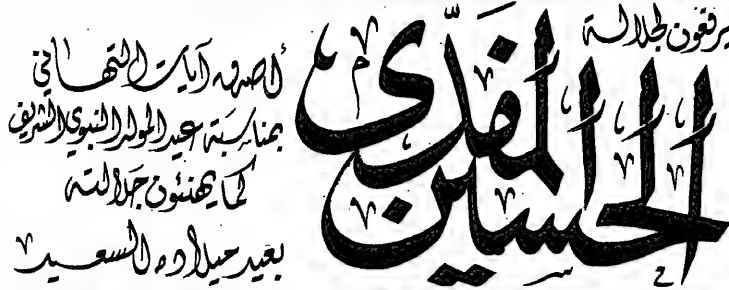 يرفعون لجلالة
الحسين المفدى
أصدق آيات التهاني
بمناسبة عيد المولد النبوي الشريف
كما يهنئون جلالته
بعيد ميلاده السعيد